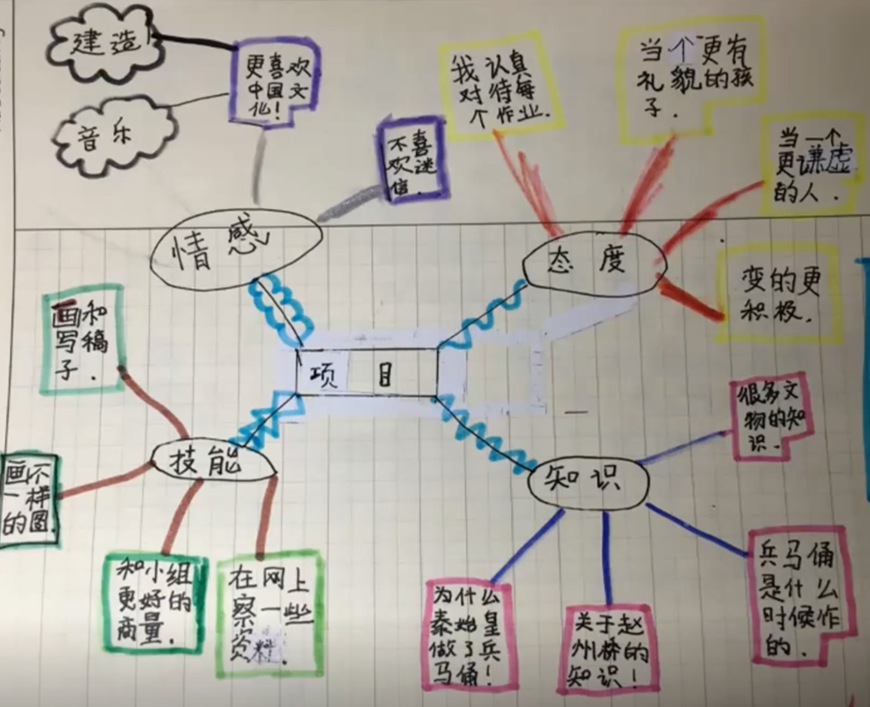 建造
音乐
更喜欢
中国文
化！
不喜
欢迷
信.
情感
我认真
对待每
个作业.
当个更有
礼貌的孩
子.
当一个
更谦虚
的人.
变的更
积极.
态度
项目
画和
写稿
子.
技能
画不
一样
的图.
和小组
更好的
商量.
在网上
察一些
资料.
知识
很多文
物的知
识.
为什么
秦始皇
做了兵
马俑！
关于赵
州桥的
知识！
兵马俑
是什么
时候作
的.